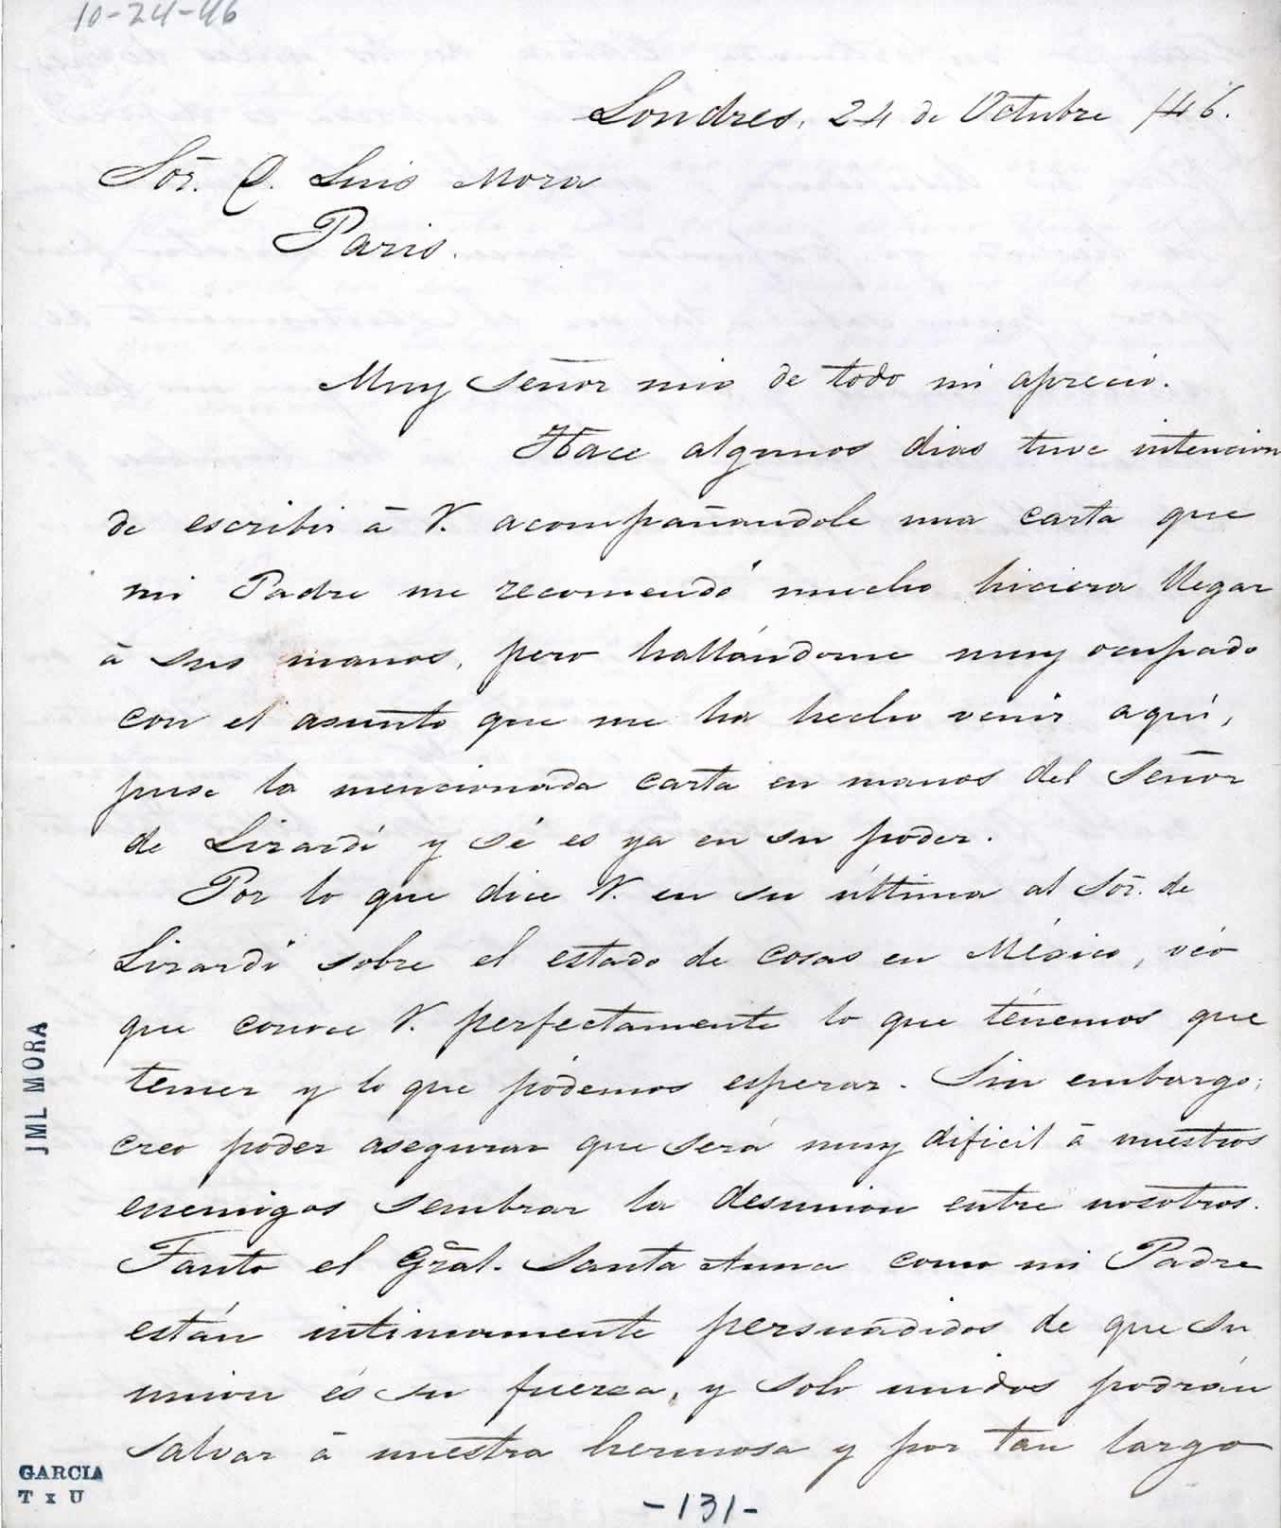 10-24-46
Londres, 24 de Octubre /46.
Sor. D. Luis Mora
Paris.
Muy Señor mio de todo mi aprecio.
Hace algunos dias tuve intencion
de escribir á V. acompañandole una carta que
mi Padre me recomendó mucho hiciera llegar
á sus manos, pero hallándome muy ocupado
con el asunto que me ha hecho venir aquí,
puse la mencionada carta en manos del Señor
de Lizardi y sé es ya en su poder.
Por lo que dice V. en su última al Sor. de
Lizardi sobre el estado de cosas en México, véo
que conoce V. perfectamente lo que ténemos que
temer y lo que pódemos esperar. Sin embargo,
creo poder asegurar que será muy dificil á nuestros
enemigos sembrar la desunion entre nosotros.
Tanto el Gral. Santa Anna como mi Padre
están intimamente persuadidos de que su
union és su fuerza, y solo unidos podrán
salvar á nuestra hermosa y por tan largo
JML MORA
GARCIA
T x U
-131-